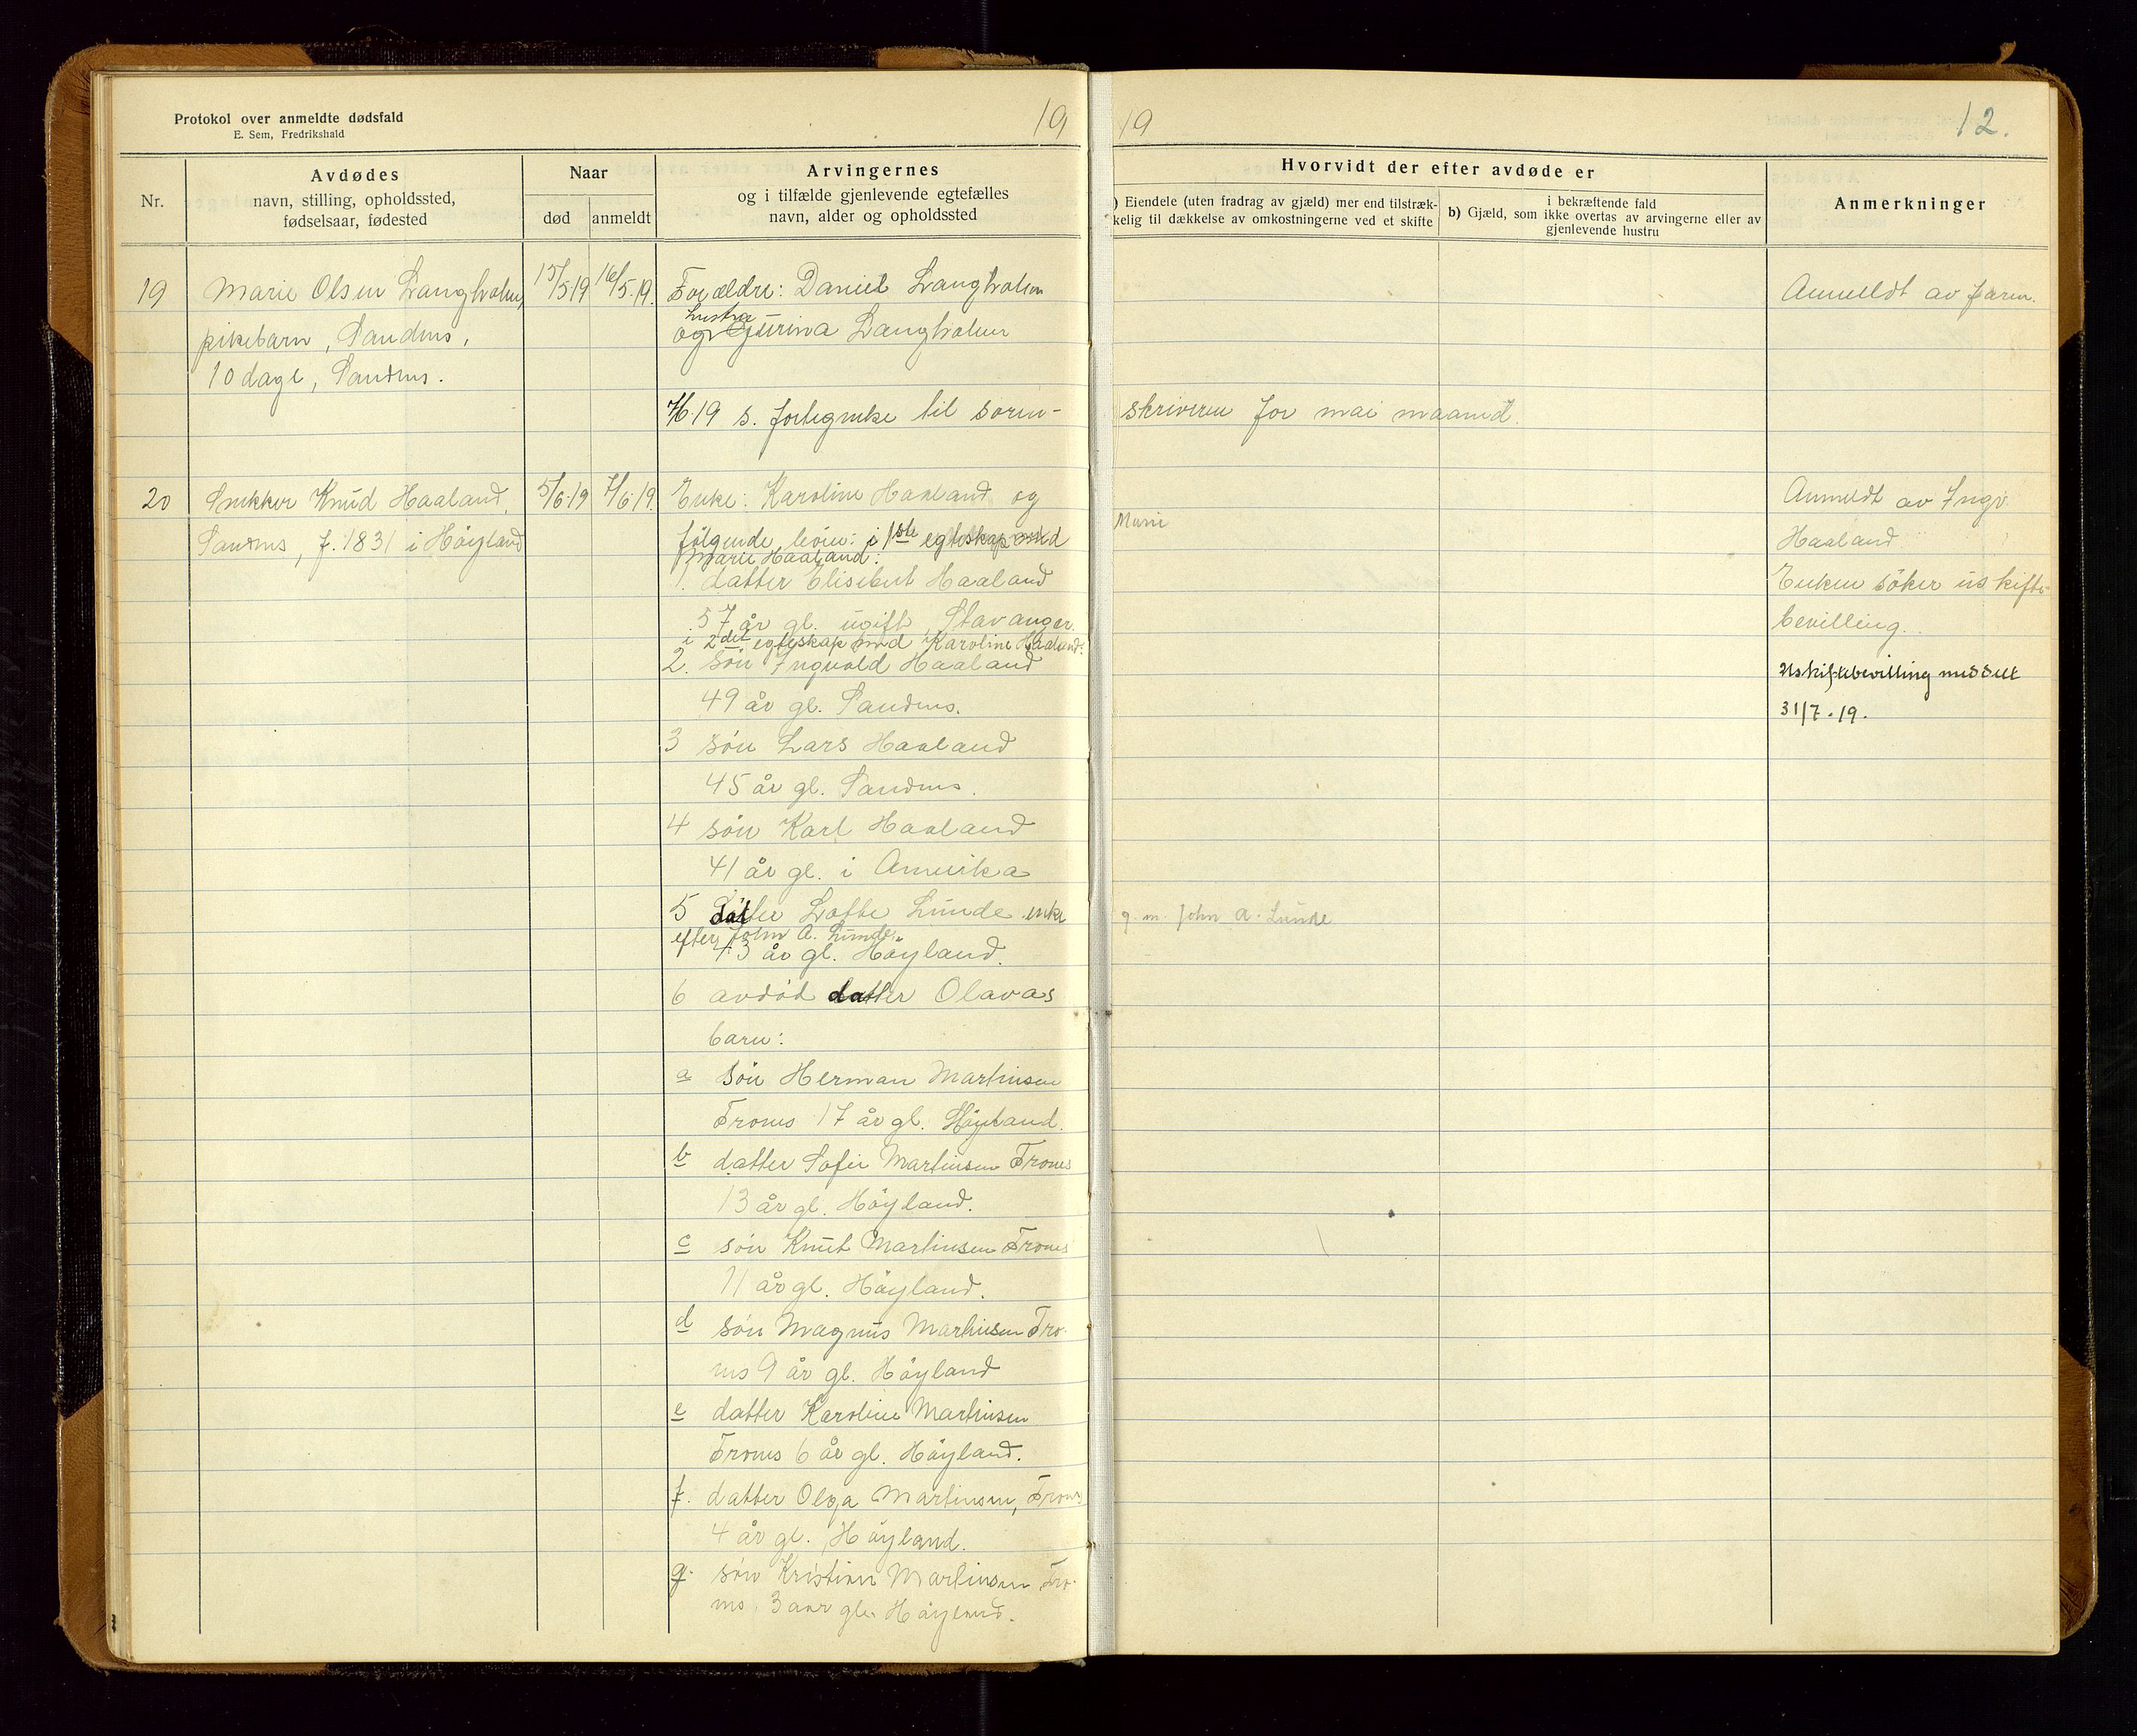 Protokol over anmeldte dødsfald
E. Sem, Fredrikshald
19
19
12.
Nr.
Avdødes
navn, stilling, opholdssted,
fødselsaar, fødested
Naar
død
anmeldt
Arvingernes
og i tilfælde gjenlevende egtefælles
navn, alder og opholdssted
Hvorvidt der efter avdøde er
) Eiendele (uten fradrag av gjæld) mer end tilstræk-
kelig til dækkelse av omkostningerne ved et skifte
i bekræftende fald
b) Gjæld, som ikke overtas av arvingerne eller av
gjenlevende hustru
Anmerkninger
19
Marie Olsen Langholen,
pikebarn, Sandnes,
10 dage, Sandnes.
15/5 19
16/5. 19.
Forældre: Daniel Langholen
hustru
og Gurina Langholen
Anmeldt av faren.
7/6 19 s. fortegnelse til soren-
skriveren for mai maaned.
20
Snekker Knud Haaland,
Sandnes, f. 1831 i Höyland
5/6.19
7/6.19.
Enke: Karoline Haaland og
følgende livsarv.: i 1ste egteskap med
Marie Haaland:
Marie
1. datter Elisebet Haaland
57 år gl. ugift, Stavanger.
i 2det egteskap med Karoline Haaland:
2. søn Ingvald Haaland
49 år gl. Sandnes.
3 søn Lars Haaland
45 år gl. Sandnes.
4 søn Karl Haaland
41 år gl. i Amerika
5 datter Lotte Lunde enke
efter John A. Lunde
43 år gl. Höyland.
g. m. John A. Lunde
6 avdød datter Olavas
barn:
a søn Herman Martinsen
Trones 17 år gl. Höyland.
b datter Sofie Martinsen Trones
13 år gl. Höyland.
c søn Knut Martinsen Trones
11 år gl. Höyland.
d søn Magnus Martinsen Tro-
nes 9 år gl. Höyland
e datter Karoline Martinsen
Trones 6 år gl. Höyland.
f. datter Olga Martinsen, Trones
4 år gl. Höyland.
g. søn Kristian Martinsen Tro-
nes, 3 aar gl. Höyland.
Anmeldt av Ingv.
Haaland
Enken søker uskifte-
bevilling.
Uskiftebevilling meddelt
31/7.19.